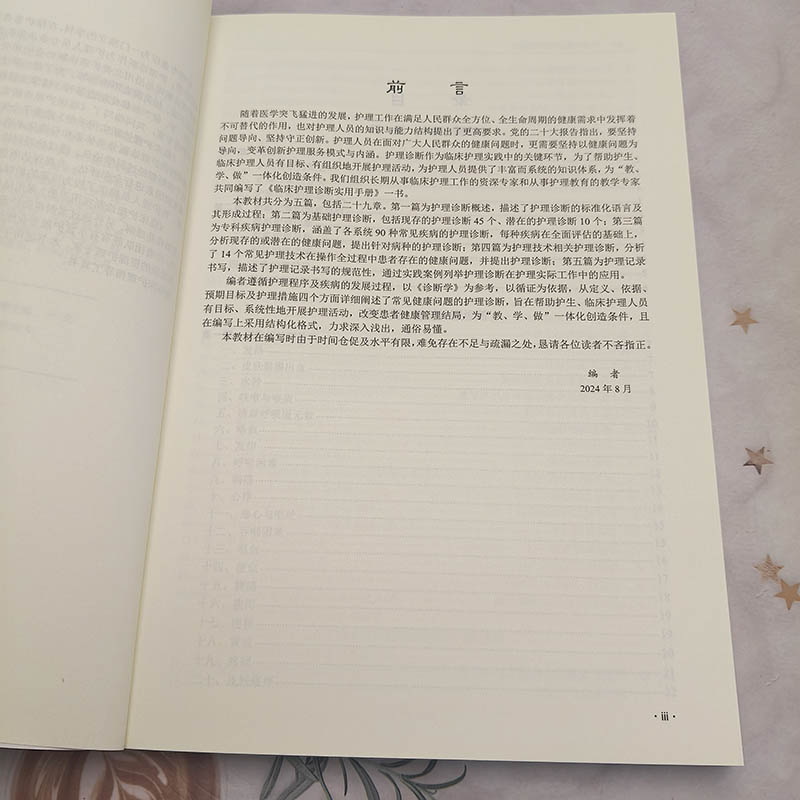 前 言
随着医学突飞猛进的发展，护理工作在满足人民群众全方位、全生命周期的健康需求中发挥着
不可替代的作用，也对护理人员的知识与能力结构提出了更高要求。党的二十大报告指出，要坚持
问题导向、坚持守正创新。护理人员在面对广大人民群众的健康问题时，更需要坚持以健康问题为
导向，变革创新护理服务模式与内涵。护理诊断作为临床护理实践中的关键环节，为了帮助护生、
临床护理人员有目标、有组织地开展护理活动，为护理人员提供了丰富而系统的知识体系，为“教、
学、做”一体化创造条件。我们组织长期从事临床护理工作的资深专家和从事护理教育的教学专家
共同编写了《临床护理诊断实用手册》一书。
本教材共分为五篇，包括二十九章。第一篇为护理诊断概述，描述了护理诊断的标准化语言及
其形成过程；第二篇为基础护理诊断，包括现存的护理诊断 45 个、潜在的护理诊断 10 个；第三篇
为专科疾病护理诊断，涵盖了各系统 90 种常见疾病的护理诊断，每种疾病在全面评估的基础上，
分析现存的或潜在的健康问题，提出针对病种的护理诊断；第四篇为护理技术相关护理诊断，分析
了 14 个常见护理技术在操作全过程中患者存在的健康问题，并提出护理诊断；第五篇为护理记录
书写，描述了护理记录书写的规范性，通过实践案例列举护理诊断在护理实际工作中的应用。
编者遵循护理程序及疾病的发展过程，以《诊断学》为参考，以循证为依据，从定义、依据、
预期目标及护理措施四个方面详细阐述了常见健康问题的护理诊断，旨在帮助护生、临床护理人员
有目标、系统性地开展护理活动，改变患者健康管理结局，为“教、学、做”一体化创造条件，且
在编写上采用结构化格式，力求深入浅出，通俗易懂。
本教材在编写时由于时间仓促及水平有限，难免存在不足与疏漏之处，恳请各位读者不吝指正。
编 者
2024 年 8 月
· iii ·